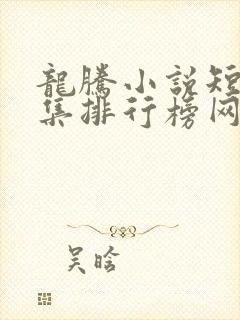 龍騰小説短
集排行榜网
吴晗